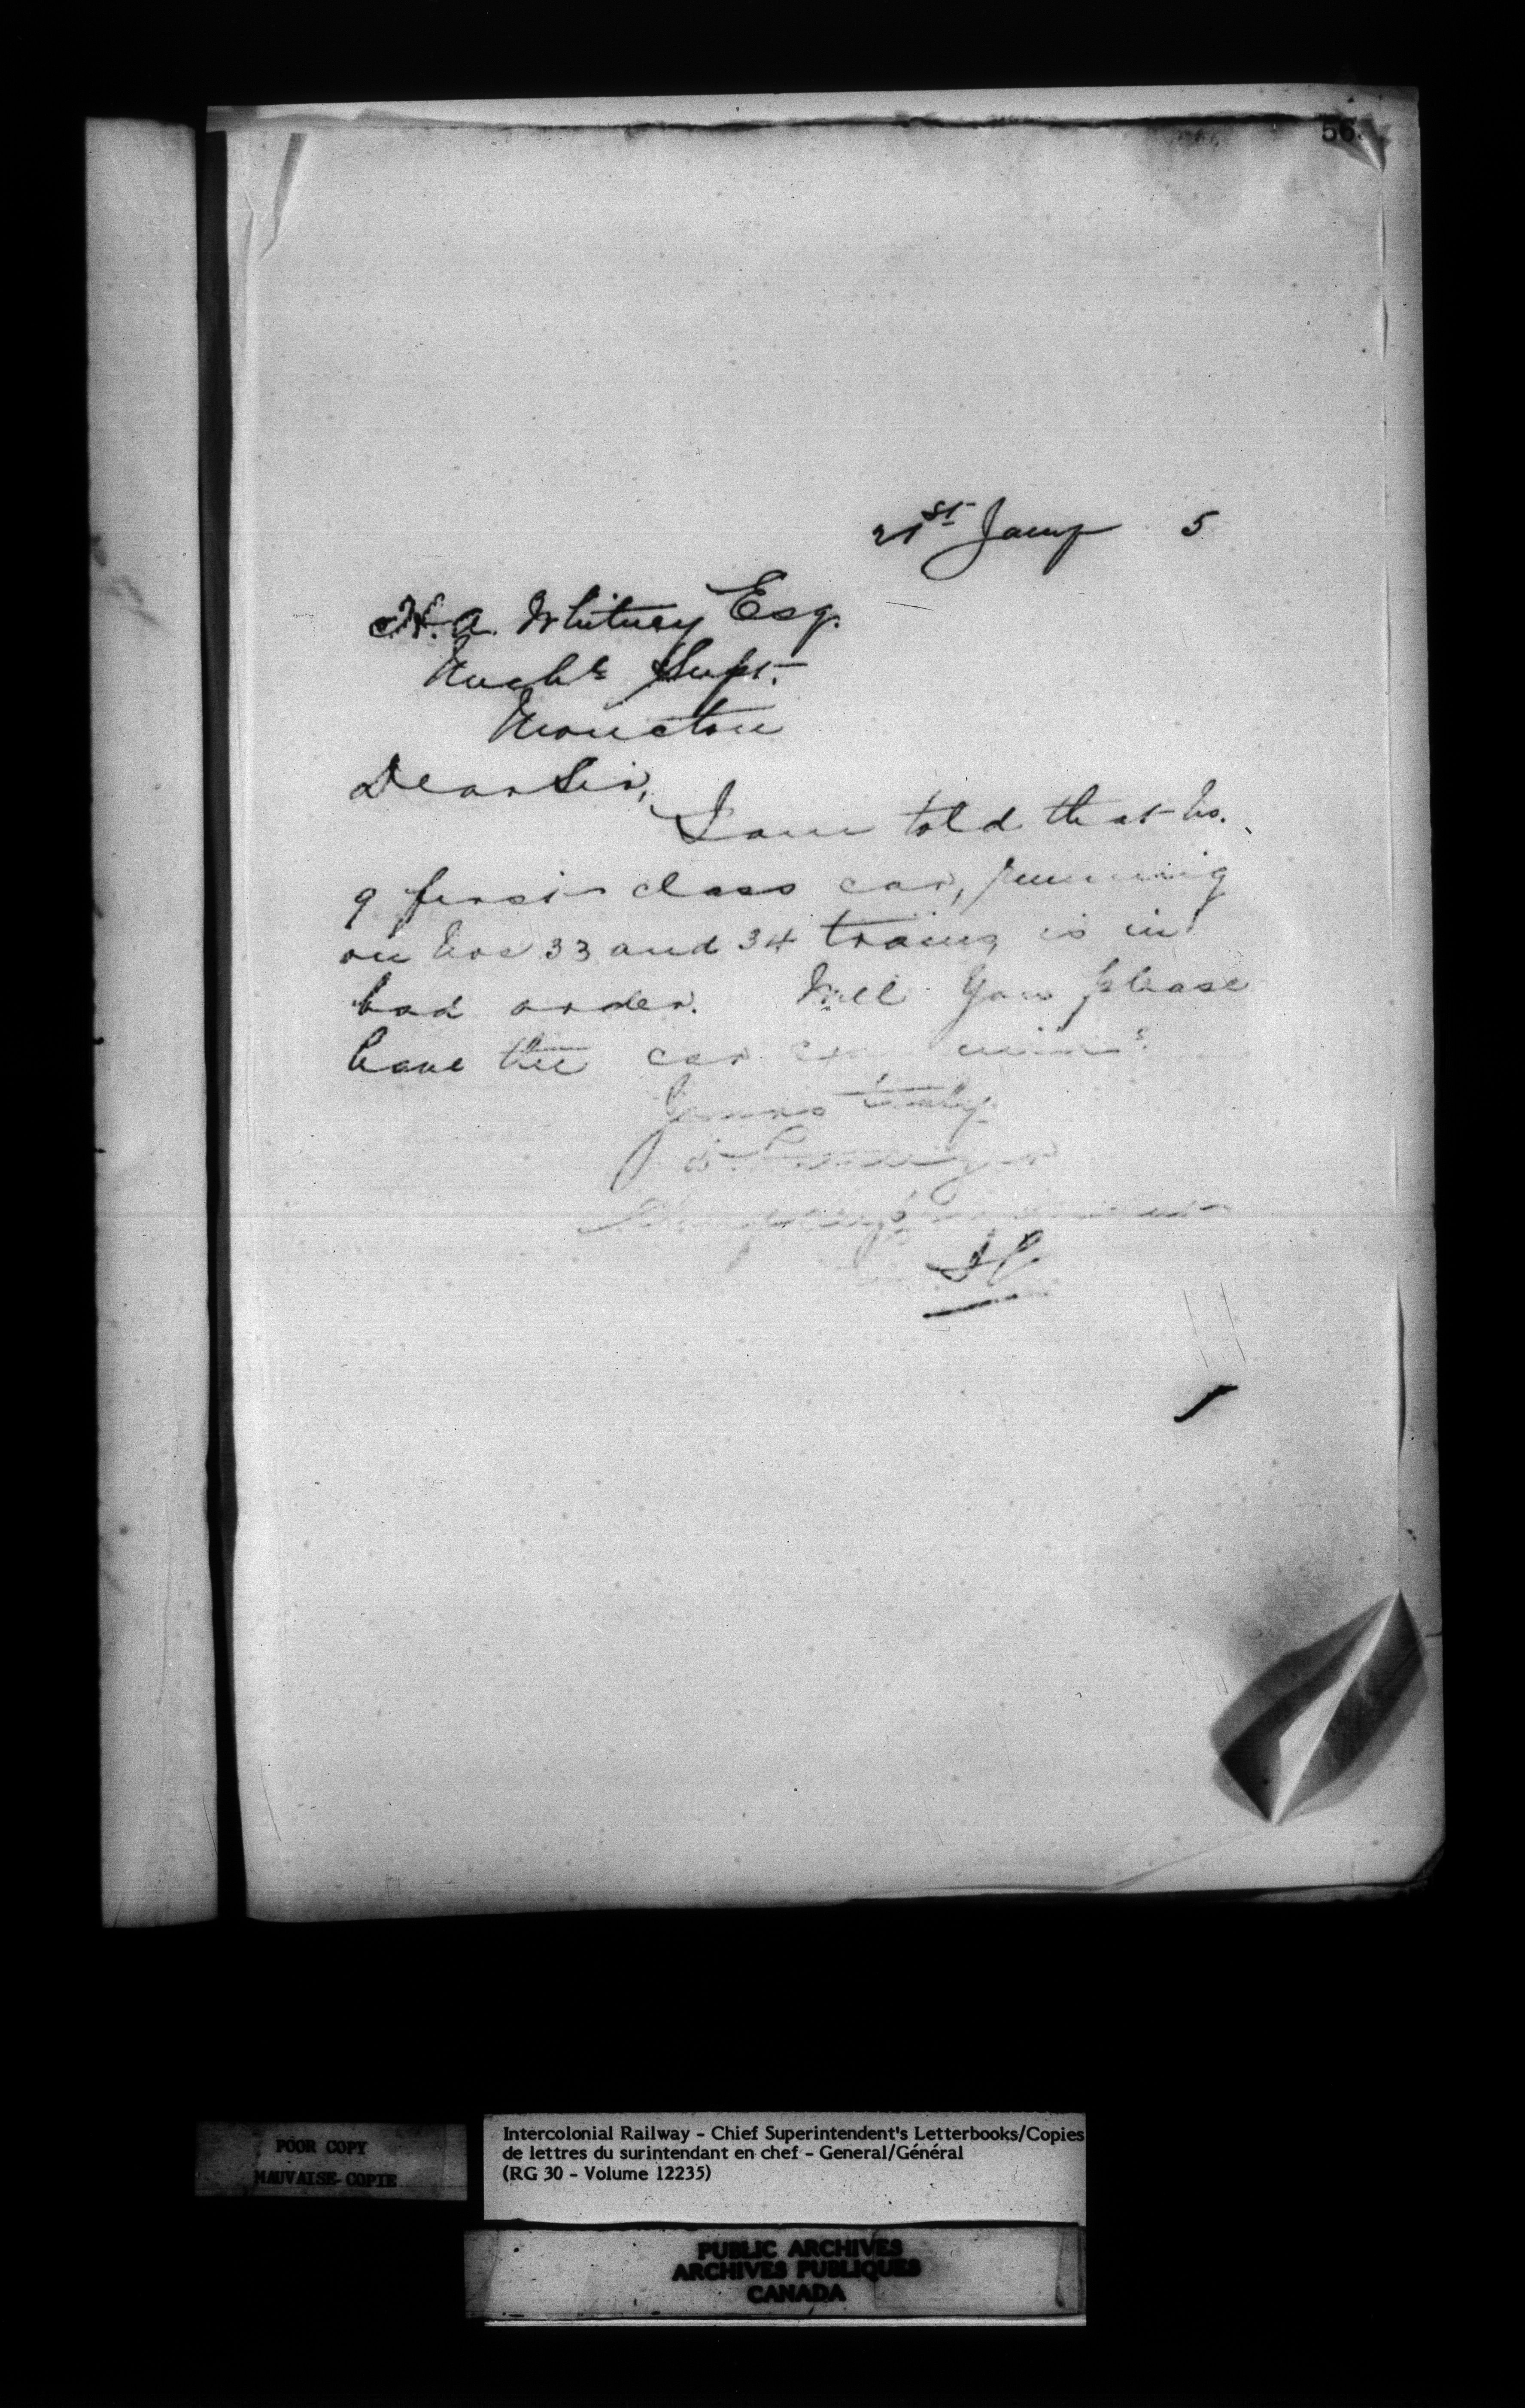 56
21st Jany 5
H. A. Whitney Esq.
Mechl Supt.
Moncton
Dear Sir,
I am told that No.
9 first class car, running
on Nos 33 and 34 trains is in
bad order. Will you please
have the car
Yours truly
POOR COPY
MAUVAISE COPIE
Intercolonial Railway - Chief Superintendent's Letterbooks/Copies
de lettres du surintendant en chef - General/Général
(RG 30 - Volume 12235)
PUBLIC ARCHIVES
ARCHIVES PUBLIQUES
CANADA